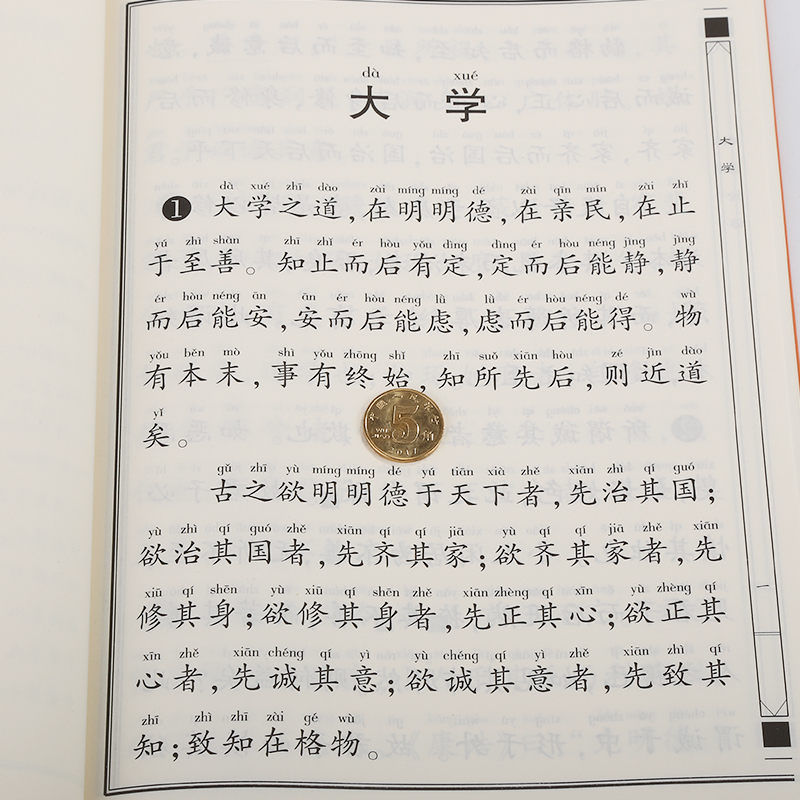 dà xué
大 学
dà xué zhī dào zài míng míng dé zài qīn mín zài zhǐ
❶ 大学之道,在明明德,在亲民,在止
yú zhì shàn zhī zhǐ ér hòu yǒu dìng dìng ér hòu néng jìng jìng
于至善。知止而后有定,定而后能静,静
ér hòu néng ān ān ér hòu néng lǜ lǜ ér hòu néng dé wù
而后能安,安而后能虑,虑而后能得。物
yǒu běn mò shì yǒu zhōng shǐ zhī suǒ xiān hòu zé jìn dào
有本末,事有终始,知所先后,则近道
yǐ
矣。
5 角
gǔ zhī yù míng míng dé yú tiān xià zhě xiān zhì qí guó
古之欲明明德于天下者,先治其国;
yù zhì qí guó zhě xiān qí qí jiā yù qí qí jiā zhě xiān
欲治其国者,先齐其家;欲齐其家者,先
xiū qí shēn yù xiū qí shēn zhě xiān zhèng qí xīn yù zhèng qí
修其身;欲修其身者,先正其心;欲正其
xīn zhě xiān chéng qí yì yù chéng qí yì zhě xiān zhì qí
心者,先诚其意;欲诚其意者,先致其
zhī zhì zhī zài gé wù
知;致知在格物。
大学
一